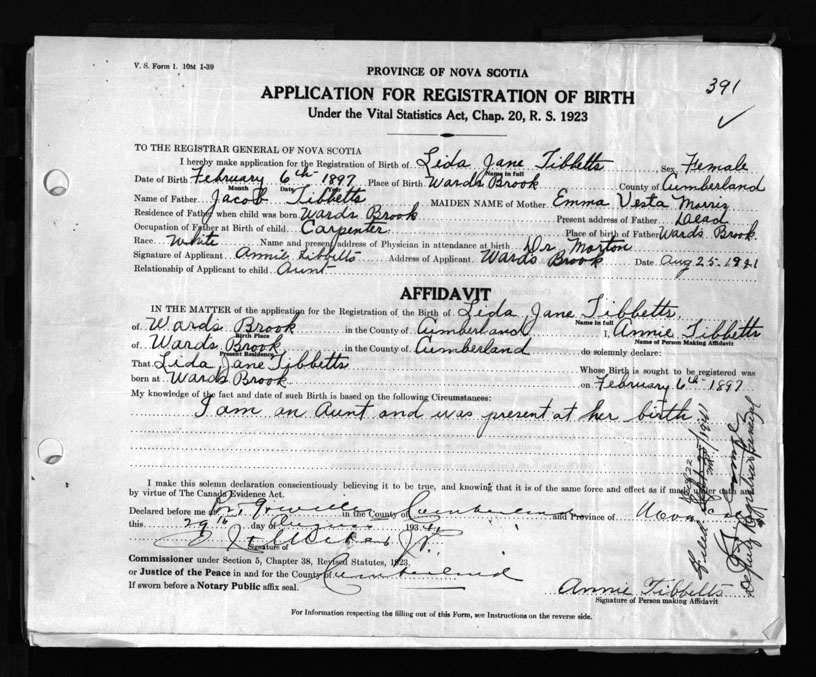 V. S. Form 1. 10M 1-39
PROVINCE OF NOVA SCOTIA
391
APPLICATION FOR REGISTRATION OF BIRTH
Under the Vital Statistics Act, Chap. 20, R. S. 1923
TO THE REGISTRAR GENERAL OF NOVA SCOTIA
I hereby make application for the Registration of Birth of Lida Jane Tibbetts Sex Female
Name in full
Date of Birth February 6th 1897 Place of Birth Wards Brook County of Cumberland
Month Date
Name of Father Jacob Tibbetts MAIDEN NAME of Mother Emma Vesta Morris
Residence of Father when child was born Wards Brook Present address of Father Dead
Occupation of Father at Birth of child Carpenter Place of birth of Father Wards Brook
Race White Name and present address of Physician in attendance at birth Dr Morton
Signature of Applicant Annie Tibbetts Address of Applicant Wards Brook Date Aug 25 1941
Relationship of Applicant to child Aunt
AFFIDAVIT
IN THE MATTER of the application for the Registration of the Birth of Lida Jane Tibbetts
Name in full
of Wards Brook in the County of Cumberland I, Annie Tibbetts
Birth Place Name of Person Making Affidavit
of Wards Brook in the County of Cumberland do solemnly declare:
Present Residence
That Lida Jane Tibbetts Whose Birth is sought to be registered was
born at Wards Brook on February 6th 1897
My knowledge of the fact and date of such Birth is based on the following Circumstances:
I am an Aunt and was present at her birth
I make this solemn declaration conscientiously believing it to be true, and knowing that it is of the same force and effect as if made under oath and
by virtue of The Canada Evidence Act.
Declared before me at in the County of Cumberland and Province of Nova
this 29th day of August 1941
Signature of
Commissioner under Section 5, Chapter 38, Revised Statutes, 1923,
or Justice of the Peace in and for the County of Cumberland
If sworn before a Notary Public affix seal.
Annie Tibbetts
Signature of Person making Affidavit
For Information respecting the filling out of this Form, see Instructions on the reverse side.
1941
Deputy Registrar General